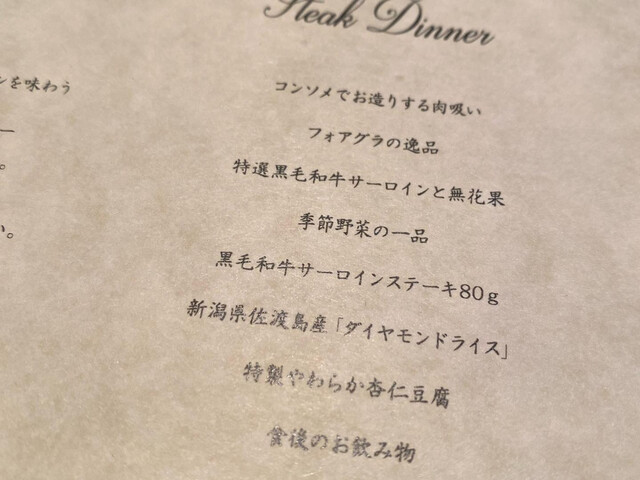 Steak Dinner
ンを味わう
コンソメでお造りする肉吸い
フォアグラの逸品
特選黒毛和牛サーロインと無花果
季節野菜の一品
黒毛和牛サーロインステーキ80g
新潟県佐渡島産「ダイヤモンドライス」
特製やわらか杏仁豆腐
食後のお飲み物